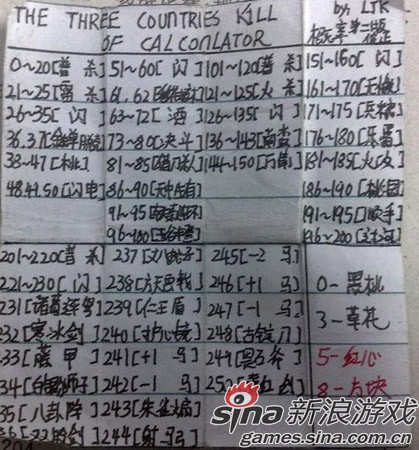 THE THREE COUNTRIES KILL
OF CALCONLATOR
by: LJK
0~20[普 杀]
51~60[ 闪 ]
101~120[普杀]
151~160[ 闪 ]
21~25[雷 杀]
121~125[火 杀]
161~170[无懈]
26~35[ 闪 ]
63~72[ 酒 ]
126~135[ 闪 ]
171~175[兵粮]
73~80[决斗]
136~143[南蛮]
176~180[乐蜀]
38~47[ 桃 ]
144~150[万箭]
181~185[火攻]
48.49.50[闪电]
86~90[无中生有]
186~190[桃园]
91~95
191~195[顺手]
96~100
196~200
201~220[普 杀]
237[丈八蛇矛]
245[-2 马]
221~230[ 闪 ]
238[方天画戟]
246[+1 马]
231[诸葛连弩]
239[仁王盾]
247[-1 马]
232[寒冰剑]
240[护心镜]
248[古锭刀]
33[藤 甲]
241[+1 马]
249
34[白银狮子]
242[-1 马]
35[八卦阵]
243[朱雀扇]
244
0-黑桃
3-草花
5-红心
8-方块
sina新浪游戏
games.sina.com.cn